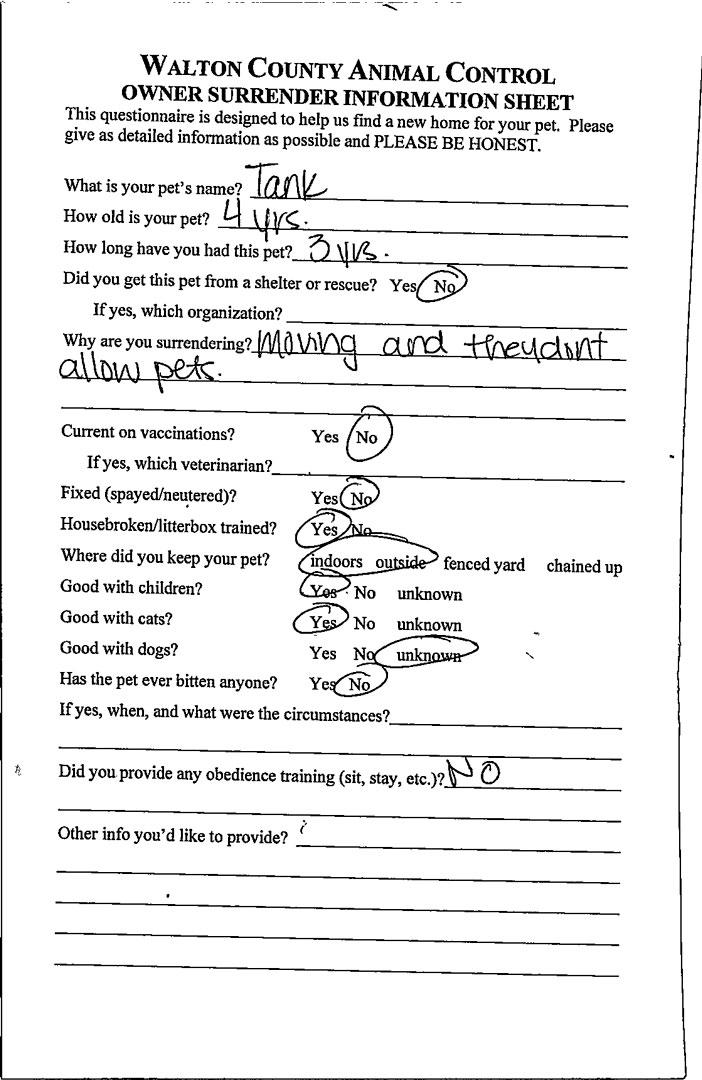 WALTON COUNTY ANIMAL CONTROL
OWNER SURRENDER INFORMATION SHEET
This questionnaire is designed to help us find a new home for your pet. Please
give as detailed information as possible and PLEASE BE HONEST.
What is your pet's name? Tank
How old is your pet? 4 yrs.
How long have you had this pet? 3 yrs.
Did you get this pet from a shelter or rescue? Yes No
If yes, which organization?
Why are you surrendering? Moving and they dont
allow pets.
Current on vaccinations? Yes No
If yes, which veterinarian?
Fixed (spayed/neutered)? Yes No
Housebroken/litterbox trained? Yes No
Where did you keep your pet? indoors outside fenced yard chained up
Good with children? Yes No unknown
Good with cats? Yes No unknown
Good with dogs? Yes No unknown
Has the pet ever bitten anyone? Yes No
If yes, when, and what were the circumstances?
Did you provide any obedience training (sit, stay, etc.)? NO
Other info you'd like to provide?